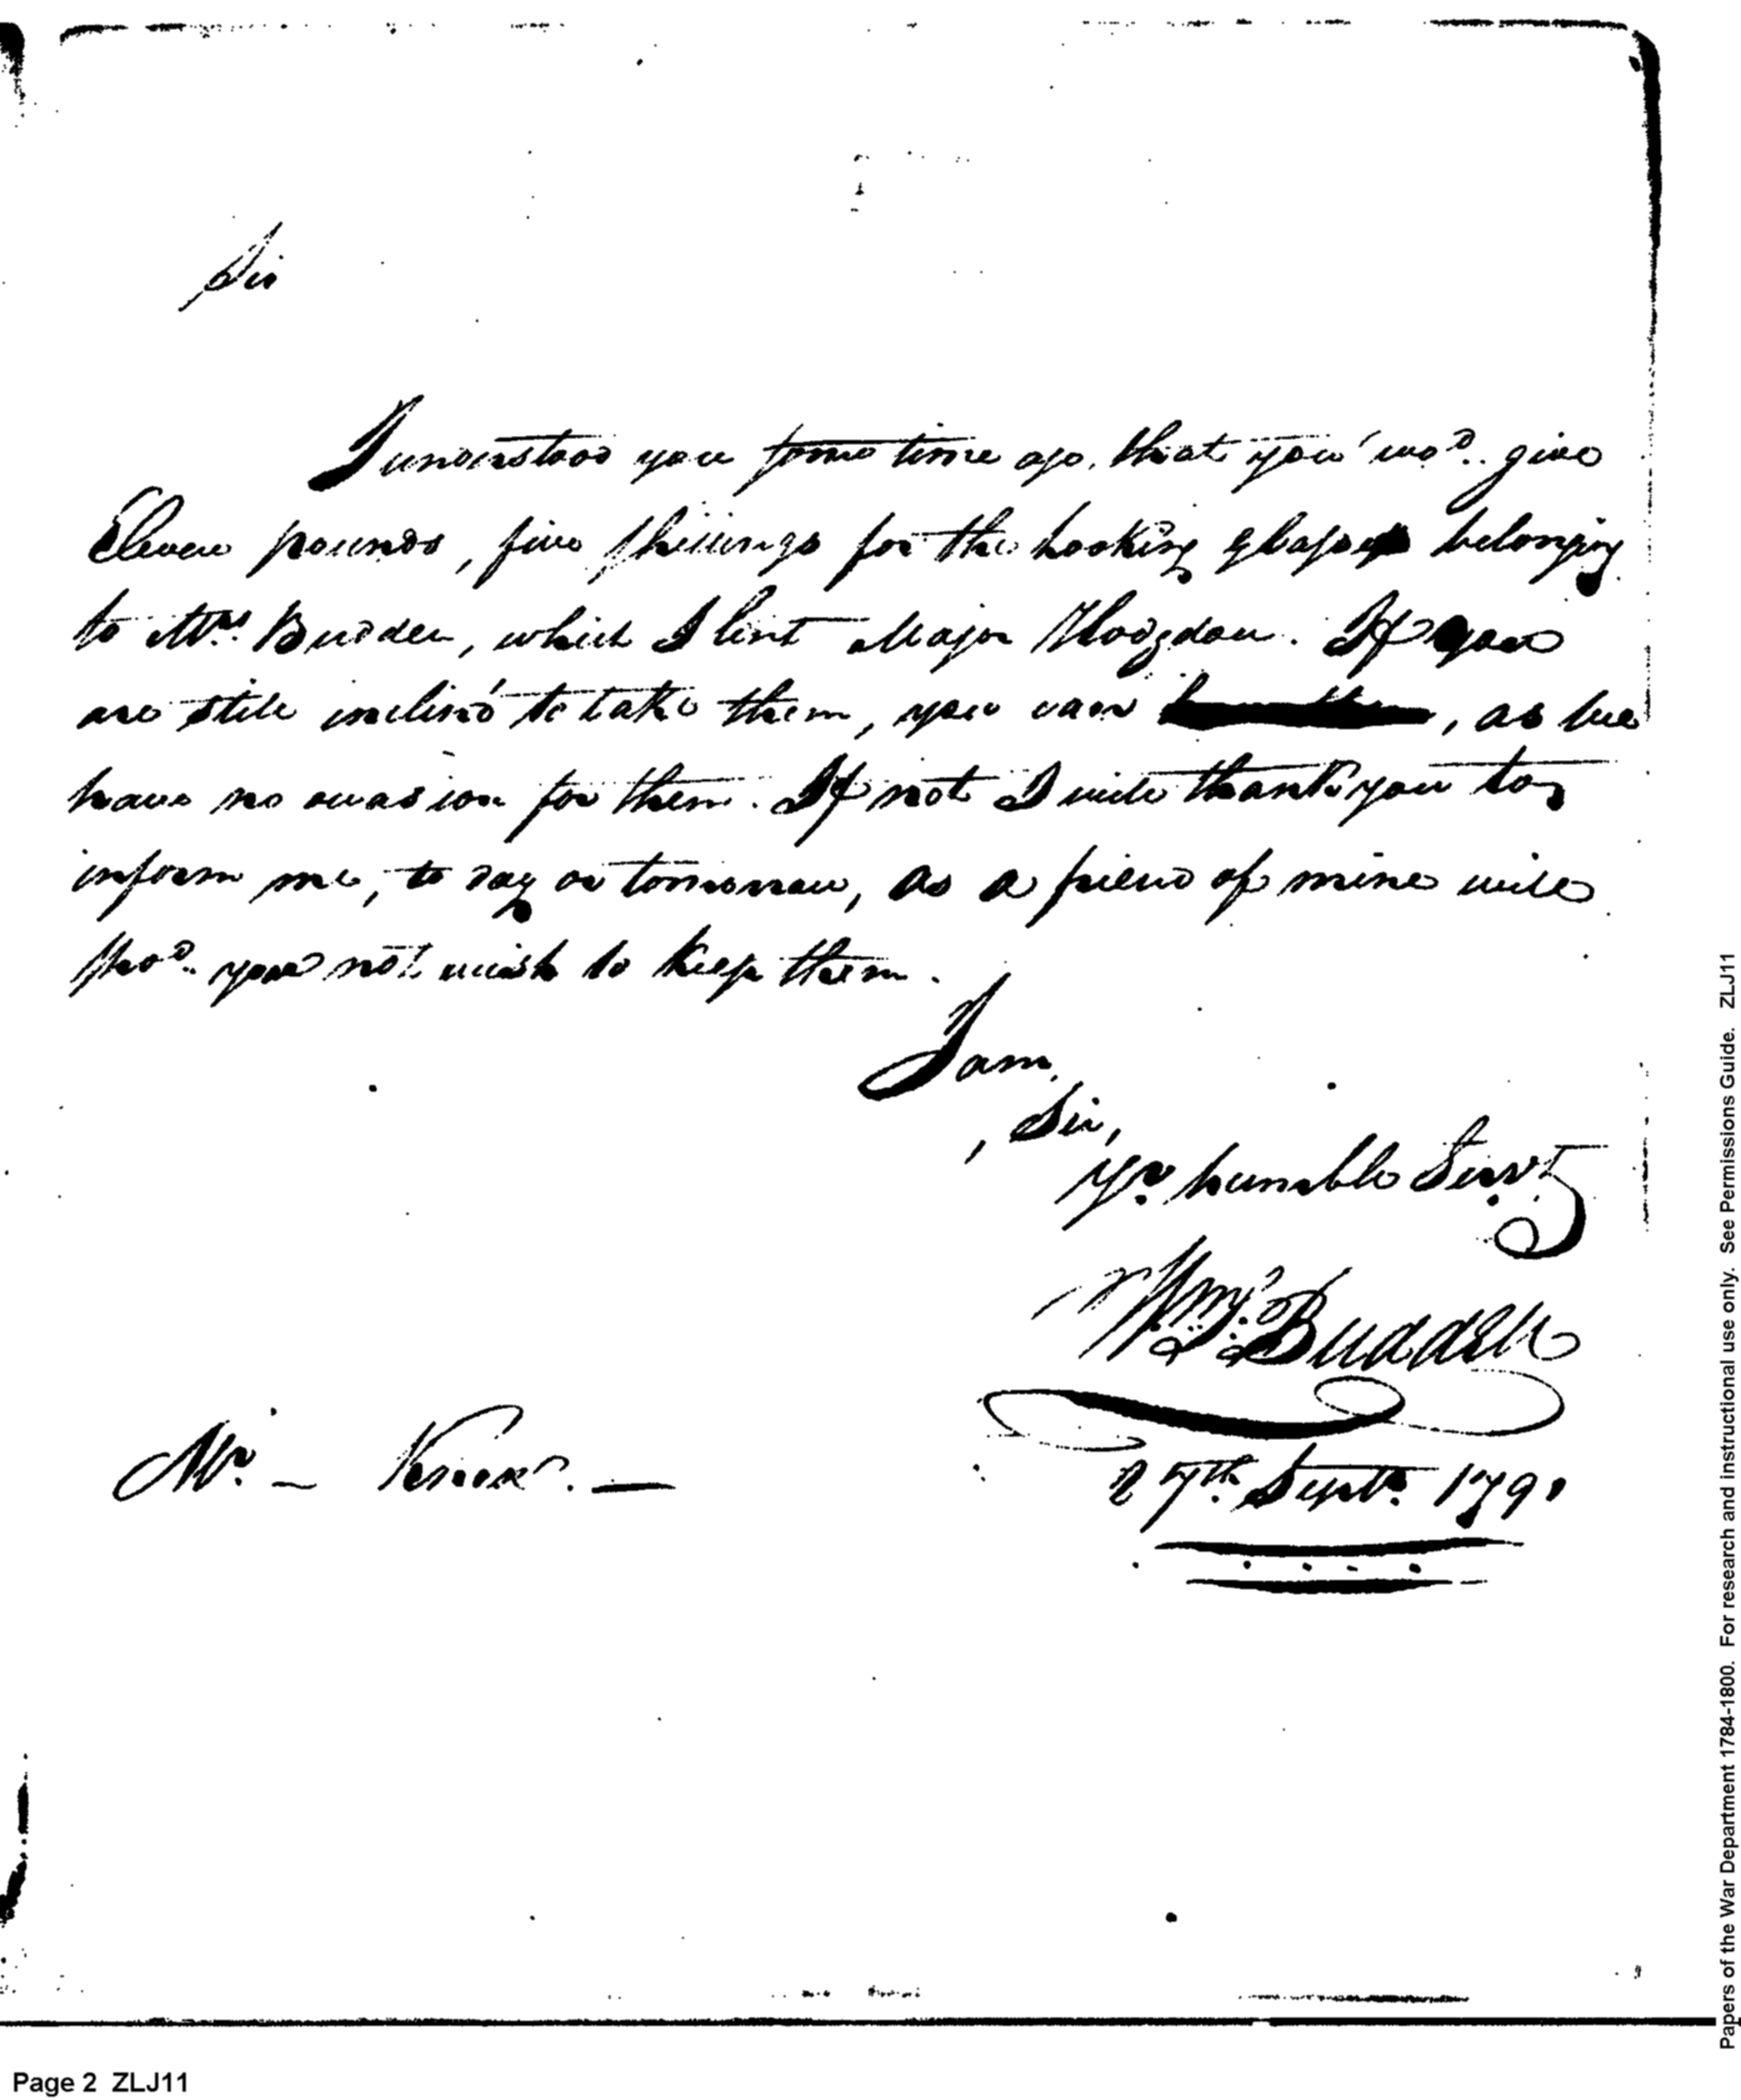 Sir
I understood you some time ago, that you wod. give
Eleven pounds, five shillings for the Looking glasses belonging
to Mrs. Budden, which I lent Major Hodgdon. If you
are still inclin'd to take them, you can , as we
have no occasion for them. If not I will thank you to
inform me, to day or tomorrow, as a friend of mine will
shod. you not wish to keep them.
I am,
Sir,
Yr. humble Servt.
Wm. Budden
27th. Septr. 1791
Mr. — Knox. —
Papers of the War Department 1784-1800. For research and instructional use only. See Permissions Guide. ZLJ11
Page 2 ZLJ11